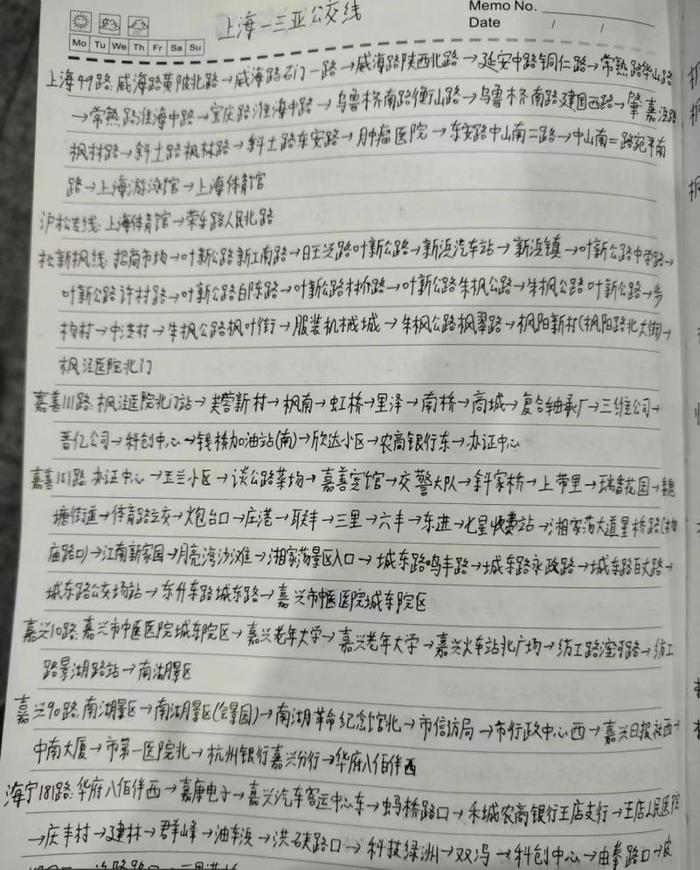 上海—三亚公交线
Memo No.
Date / /
Mo Tu We Th Fr Sa Su
上海49路:威海路黄陂北路→威海路石门一路→威海路陕西北路→延安中路铜仁路→常熟路华山路
→常熟路淮海中路→宝庆路淮海中路→乌鲁木齐南路衡山路→乌鲁木齐南路建国西路→肇嘉浜路
枫林路→斜土路枫林路→斜土路东安路→肿瘤医院→东安路中山南二路→中山南二路宛平南
路→上海游泳馆→上海体育馆
沪松专线:上海体育馆→荣乐路人民北路
松新枫线:招商市场→叶新公路新江南路→日王兴路叶新公路→新浜汽车站→新浜镇→叶新公路中学路→
叶新公路许村路→叶新公路白陈路→叶新公路林介路→叶新公路朱枫公路→朱枫公路叶新公路→乡
村→中村→朱枫公路枫叶街→服装机械城→朱枫公路枫翠路→枫阳新村(枫阳路北大街)→
枫泾医院北门
嘉善111路:枫泾医院北门站→芙蓉新村→枫南→虹桥→里泽→南桥→商城→复合轴承厂→三维公司→
晋亿公司→科创中心→钱桥加油站(南)→欣达小区→农商银行东→办证中心
嘉善151路:办证中心→玉兰小区→谈公路菜场→嘉善宾馆→交警大队→斜家桥→上带里→瑞香花园→魏
塘街道→体育路立交→炮台口→庄港→联丰→三里→六丰→东进→七星收费站→湘家荡大道星桥路(
庙路口)→江南新家园→月亮湾沙滩→湘家荡景区入口→城东路鸣丰路→城东路永政路→城东路百大路→
城东路公交场站→东升东路城东路→嘉兴市中医医院城东院区
嘉兴10路:嘉兴市中医医院城东院区→嘉兴老年大学→嘉兴老年大学→嘉兴火车站北广场→纺工路路→纺工
路景湖路站→南湖景区
嘉兴90路:南湖景区→南湖景区(会景园)→南湖革命纪念馆北→市信访局→市行政中心西→嘉兴日报社西→
中南大厦→市第一医院北→杭州银行嘉兴分行→华府八佰伴西
海宁181路:华府八佰伴西→嘉康电子→嘉兴汽车客运中心东→蚂桥路口→禾城农商银行王店支行→王店人民医院
→庆丰村→建林→群峰→油车浜→洪硖路口→科技绿洲→双冯→科创中心→由拳路口→皮